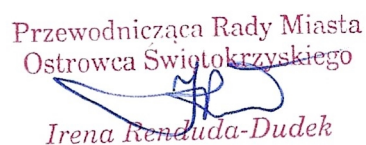 Przewodnicząca Rady Miasta
Ostrowca Świętokrzyskiego
Irena Renduda-Dudek